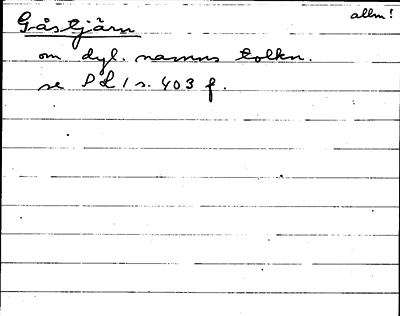 allm!
Gåstjärn
om dyl. namns tolkn.
se SL 1 s. 403 f.